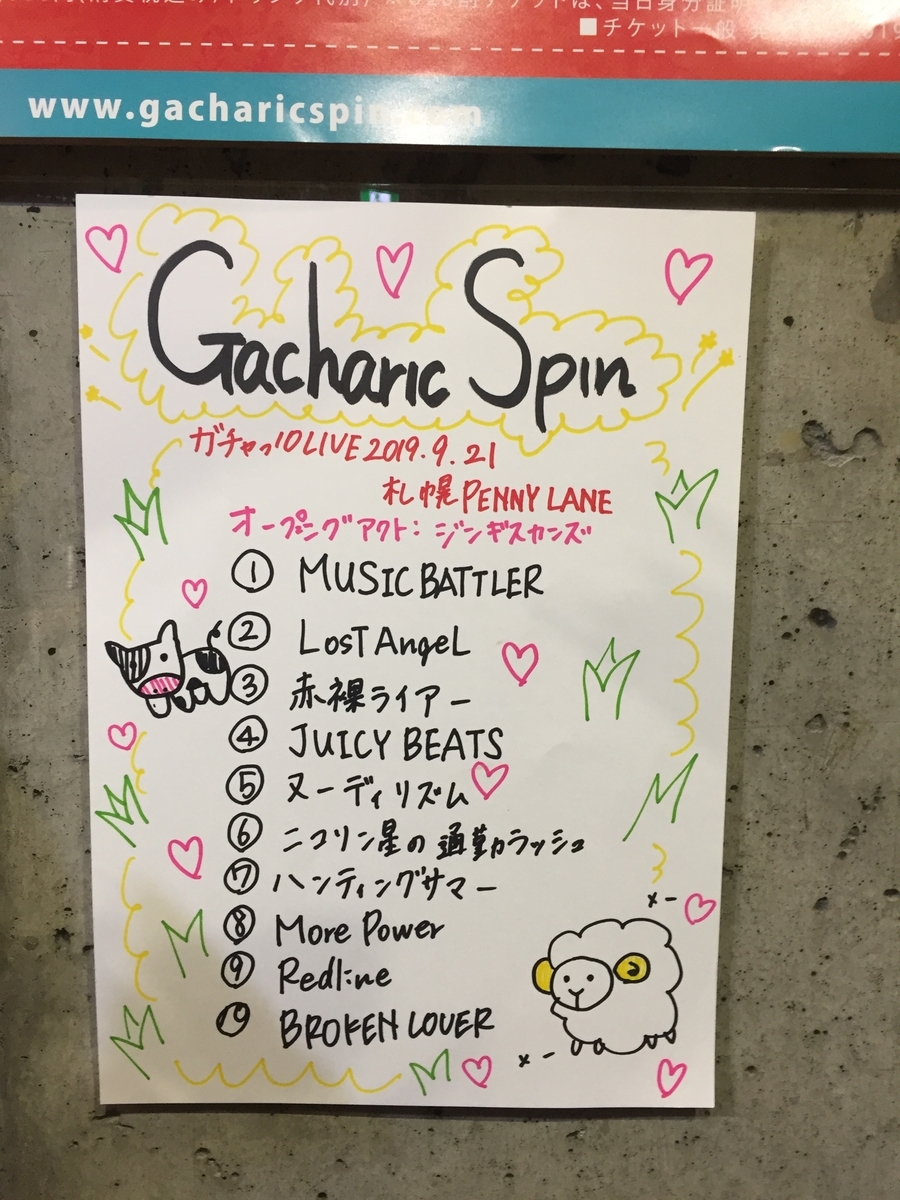 ■チケット一般
www.gacharicspin.com
Gacharic Spin
ガチャっ10 LIVE 2019.9.21
札幌 PENNY LANE
オープニングアクト：ジンギスカンズ
① MUSIC BATTLER
② LosT AngeL
③ 赤裸ライアー
④ JUICY BEATS
⑤ ヌーディリズム
⑥ ニコリン星の通勤ラッシュ
⑦ ハンティングサマー
⑧ More Power
⑨ Redline
⑩ BROKEN LOVER
メー
メー